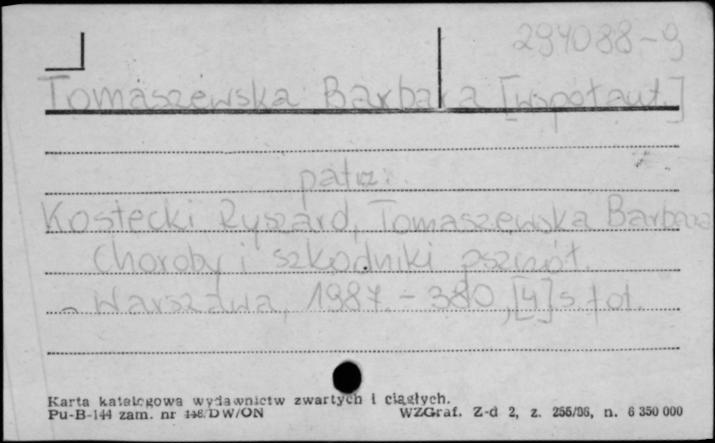 294088-9
Tomaszewska Barbara [współaut.]
patrz:
Kostecki Ryszard, Tomaszewska Barbara
Choroby i szkodniki pszczół.
- Warszawa, 1987. - 380, [4] s. fot.
Karta katalogowa wydawnictw zwartych i ciągłych.
Pu-B-144 zam. nr DW/ON WZGraf. Z-d 2, z. 256/86, n. 6 350 000